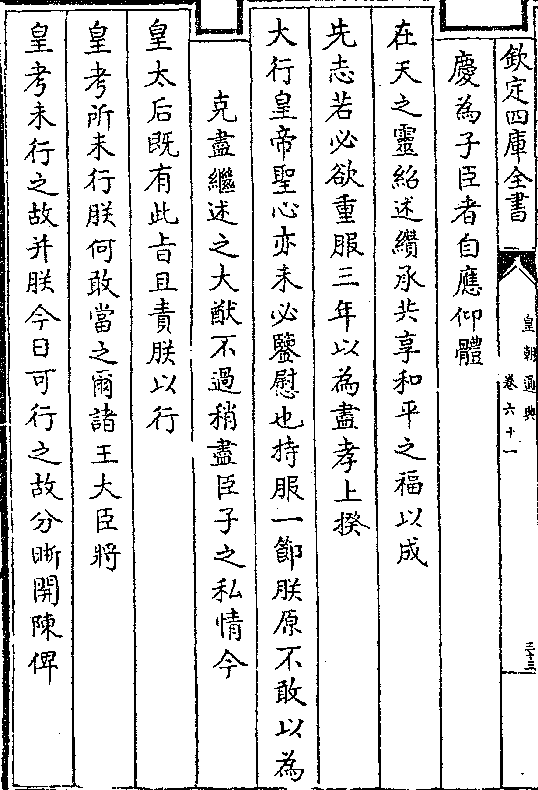 欽定四庫全書
皇朝通典
卷六十一
三十三
慶為子臣者自應仰體
在天之靈紹述纘承共享和平之福以成
先志若必欲重服三年以為盡孝上揆
大行皇帝聖心亦未必鑒慰也持服一節朕原不敢以為
克盡繼述之大猷不過稍盡臣子之私情今
皇太后既有此旨且責朕以行
皇考所未行朕何敢當之爾諸王大臣將
皇考未行之故并朕今日可行之故分晰開陳俾